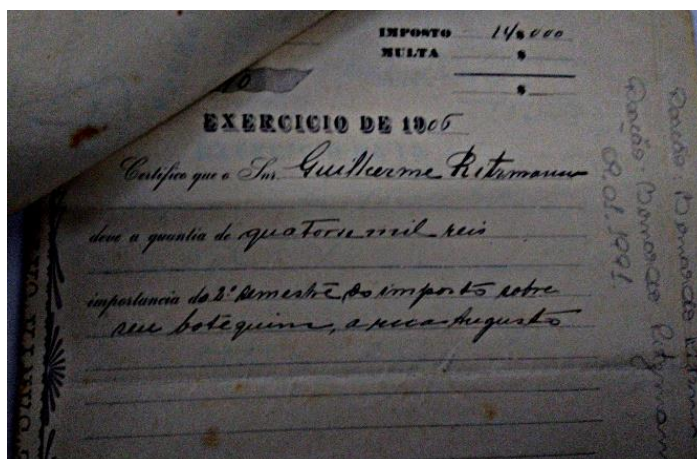 IMPOSTO 14$000
MULTA $
$
EXERCICIO DE 1906
Certifico que o Snr. Guilherme Ritzmann
deve a quantia de quatorse mil reis
importancia do 2º semestre do imposto sobre
seu botequim, a rua Augusto
Doação:
Doação: Ritzmann
1991